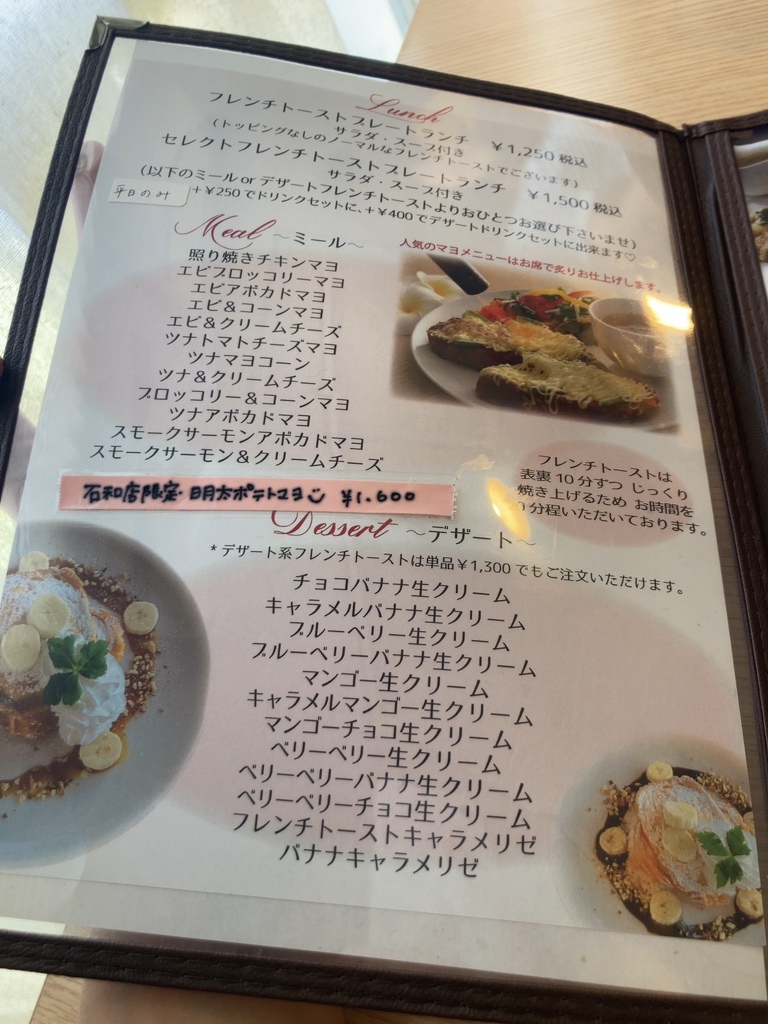 Lunch
フレンチトーストプレートランチ ¥1,250 税込
サラダ・スープ付き
(トッピングなしのノーマルなフレンチトーストでございます)
セレクトフレンチトーストプレートランチ ¥1,500 税込
サラダ・スープ付き
(以下のミール or デザートフレンチトーストよりおひとつお選び下さいませ)
平日のみ
+¥250でドリンクセットに、+¥400でデザートドリンクセットに出来ます♡
Meal ～ミール～
人気のマヨメニューはお席で炙りお仕上げします。
照り焼きチキンマヨ
エビブロッコリーマヨ
エビアボカドマヨ
エビ&コーンマヨ
エビ&クリームチーズ
ツナトマトチーズマヨ
ツナマヨコーン
ツナ&クリームチーズ
ブロッコリー&コーンマヨ
ツナアボカドマヨ
スモークサーモンアボカドマヨ
スモークサーモン&クリームチーズ
フレンチトーストは
表裏10分ずつ じっくり
焼き上げるため お時間を
0分程いただいております。
石和店限定・明太ポテトマヨ ¥1.600
Dessert ～デザート～
*デザート系フレンチトーストは単品¥1,300でもご注文いただけます。
チョコバナナ生クリーム
キャラメルバナナ生クリーム
ブルーベリー生クリーム
ブルーベリーバナナ生クリーム
マンゴー生クリーム
キャラメルマンゴー生クリーム
マンゴーチョコ生クリーム
ベリーベリー生クリーム
ベリーベリーバナナ生クリーム
ベリーベリーチョコ生クリーム
フレンチトーストキャラメリゼ
バナナキャラメリゼ